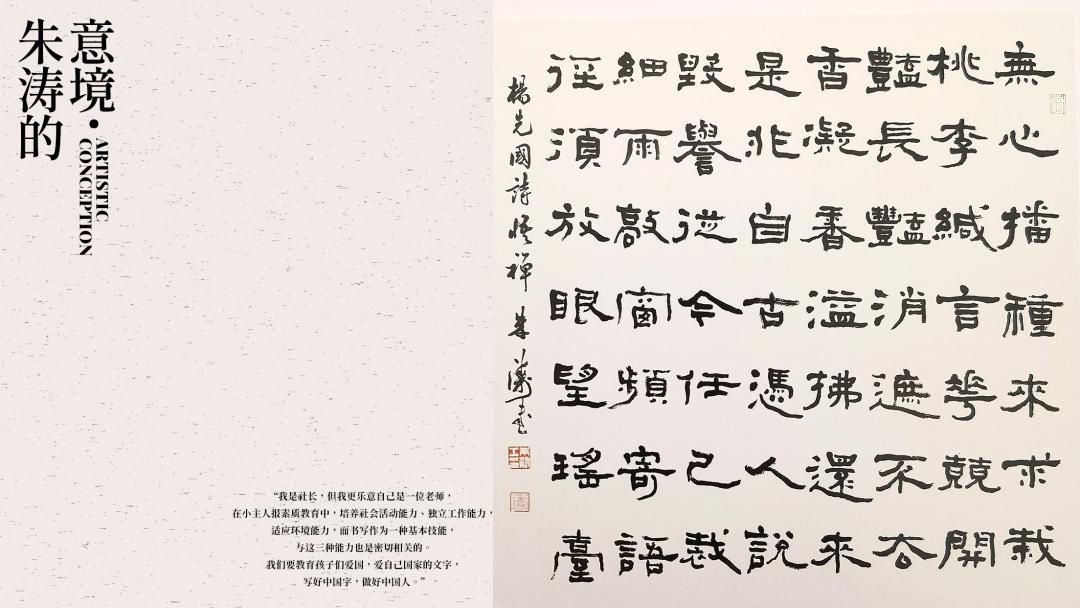 朱涛的
意境·
ARTISTIC
CONCEPTION
“我是社长，但我更乐意自己是一位老师，
在小主人报素质教育中，培养社会活动能力、独立工作能力，
适应环境能力，而书写作为一种基本技能，
与这三种能力也是密切相关的。
我们要教育孩子们爱国，爱自己国家的文字，
写好中国字，做好中国人。”
無心播種來求栽
桃李緘言華競開
豔長豔消遮不去
香凝香溢拂還來
是非自古憑人說
毀譽從今任己裁
細雨敲窗頻寄語
徑須放眼望瑤臺
楊先國詩悟禪 朱濤書